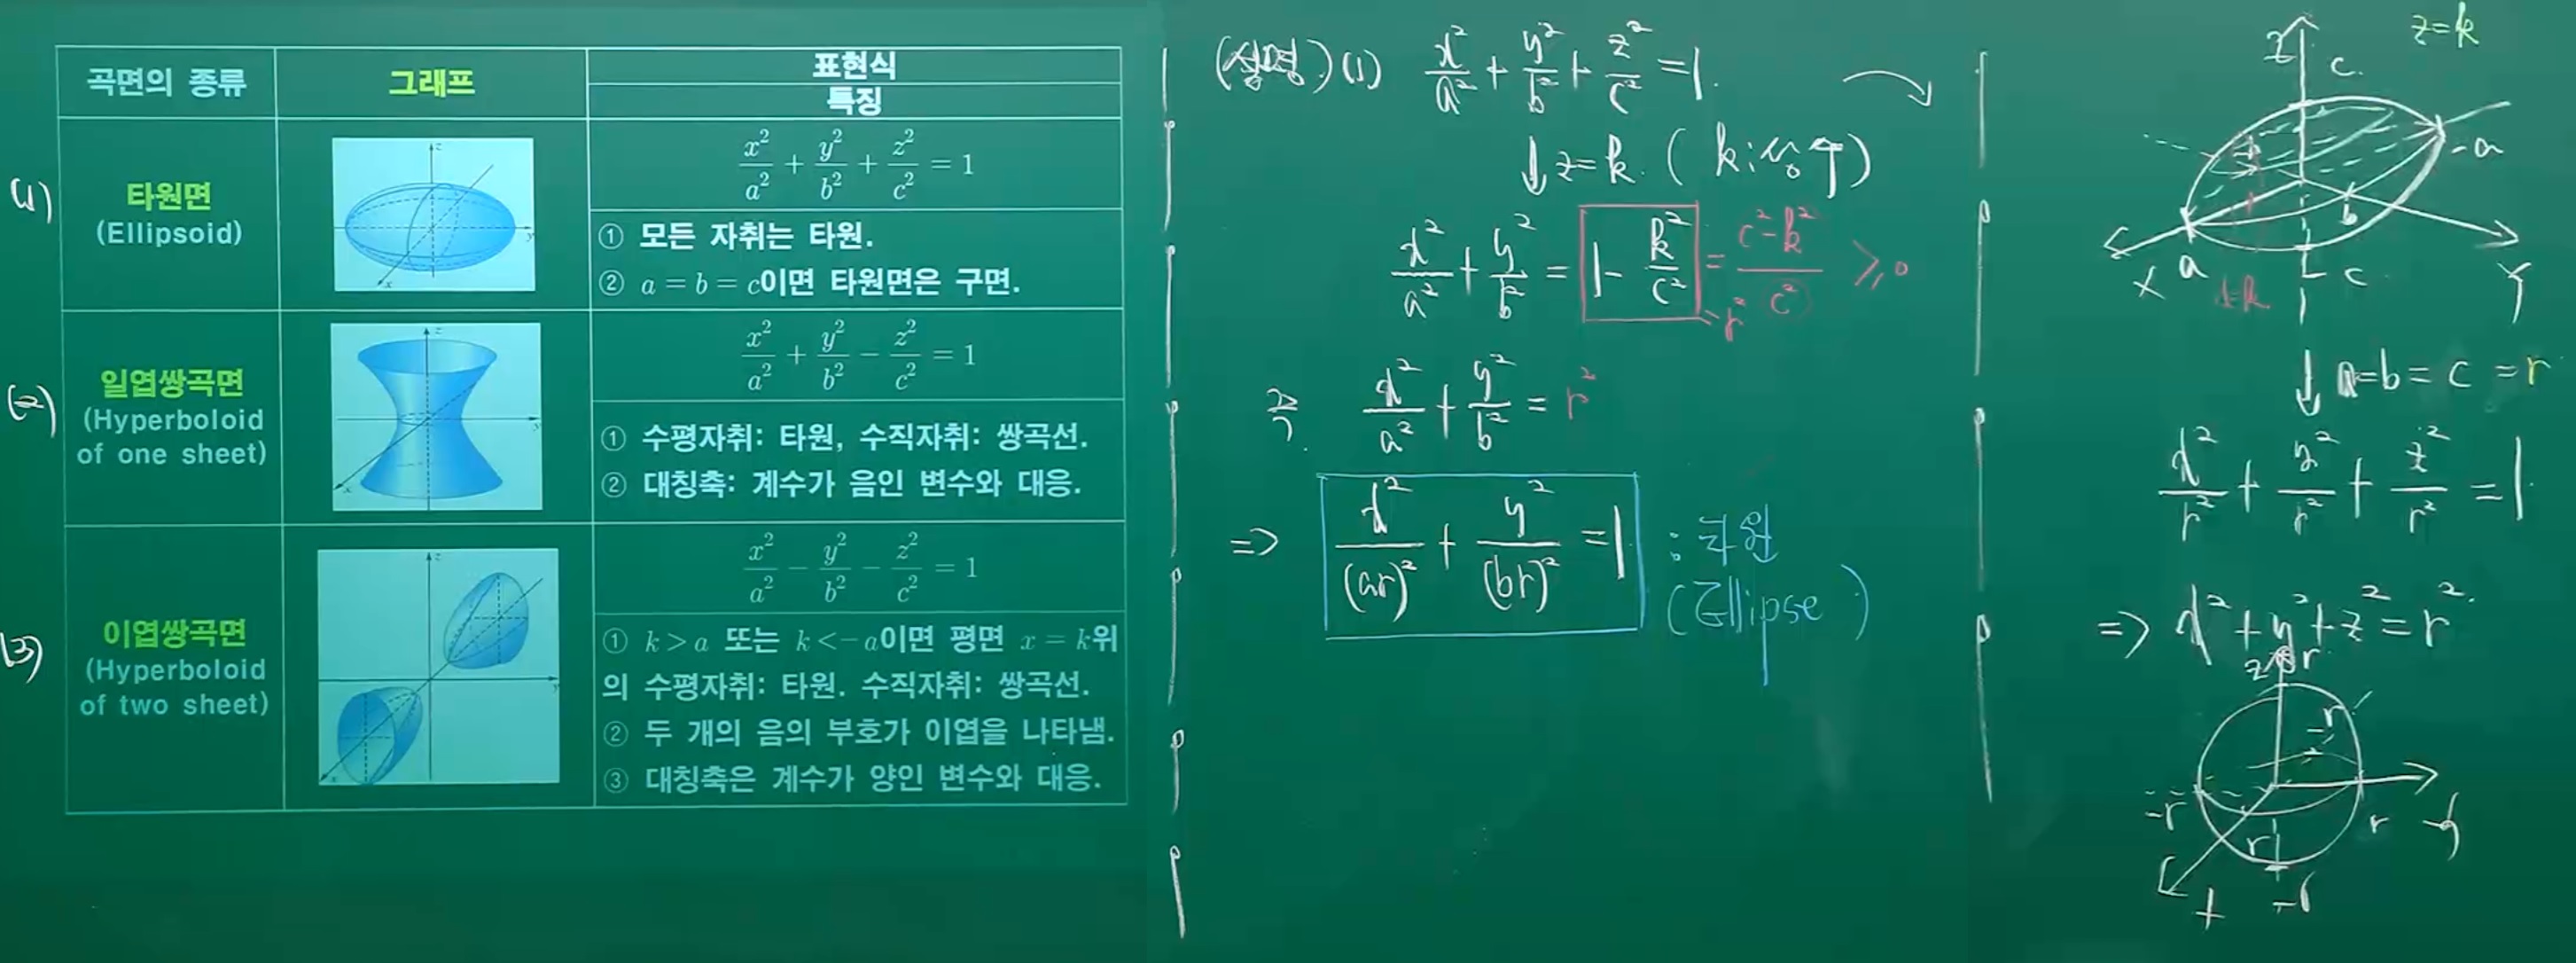 곡면의 종류 그래프 표현식
특징
(1) 타원면
(Ellipsoid)
z
y
x
x²/a² + y²/b² + z²/c² = 1
① 모든 자취는 타원.
② a = b = c이면 타원면은 구면.
(2) 일엽쌍곡면
(Hyperboloid
of one sheet)
z
y
x
x²/a² + y²/b² - z²/c² = 1
① 수평자취: 타원, 수직자취: 쌍곡선.
② 대칭축: 계수가 음인 변수와 대응.
(3) 이엽쌍곡면
(Hyperboloid
of two sheet)
z
y
x
x²/a² - y²/b² - z²/c² = 1
① k > a 또는 k < -a이면 평면 x = k위
의 수평자취: 타원. 수직자취: 쌍곡선.
② 두 개의 음의 부호가 이엽을 나타냄.
③ 대칭축은 계수가 양인 변수와 대응.
(설명) (1) x²/a² + y²/b² + z²/c² = 1.
↓ z = k. (k: 상수)
x²/a² + y²/b² = 1 - k²/c² = (c²-k²)/c² ≥ 0
r²
즉. x²/a² + y²/b² = r²
⇒ x²/(ar)² + y²/(br)² = 1 : 타원
(Ellipse)
z=k
z
c.
-a
b
a
x
-c
y
↓ a=b=c=r
x²/r² + y²/r² + z²/r² = 1
⇒ x²+y²+z²=r².
z r
-r
-r
r
y
r
x
-r